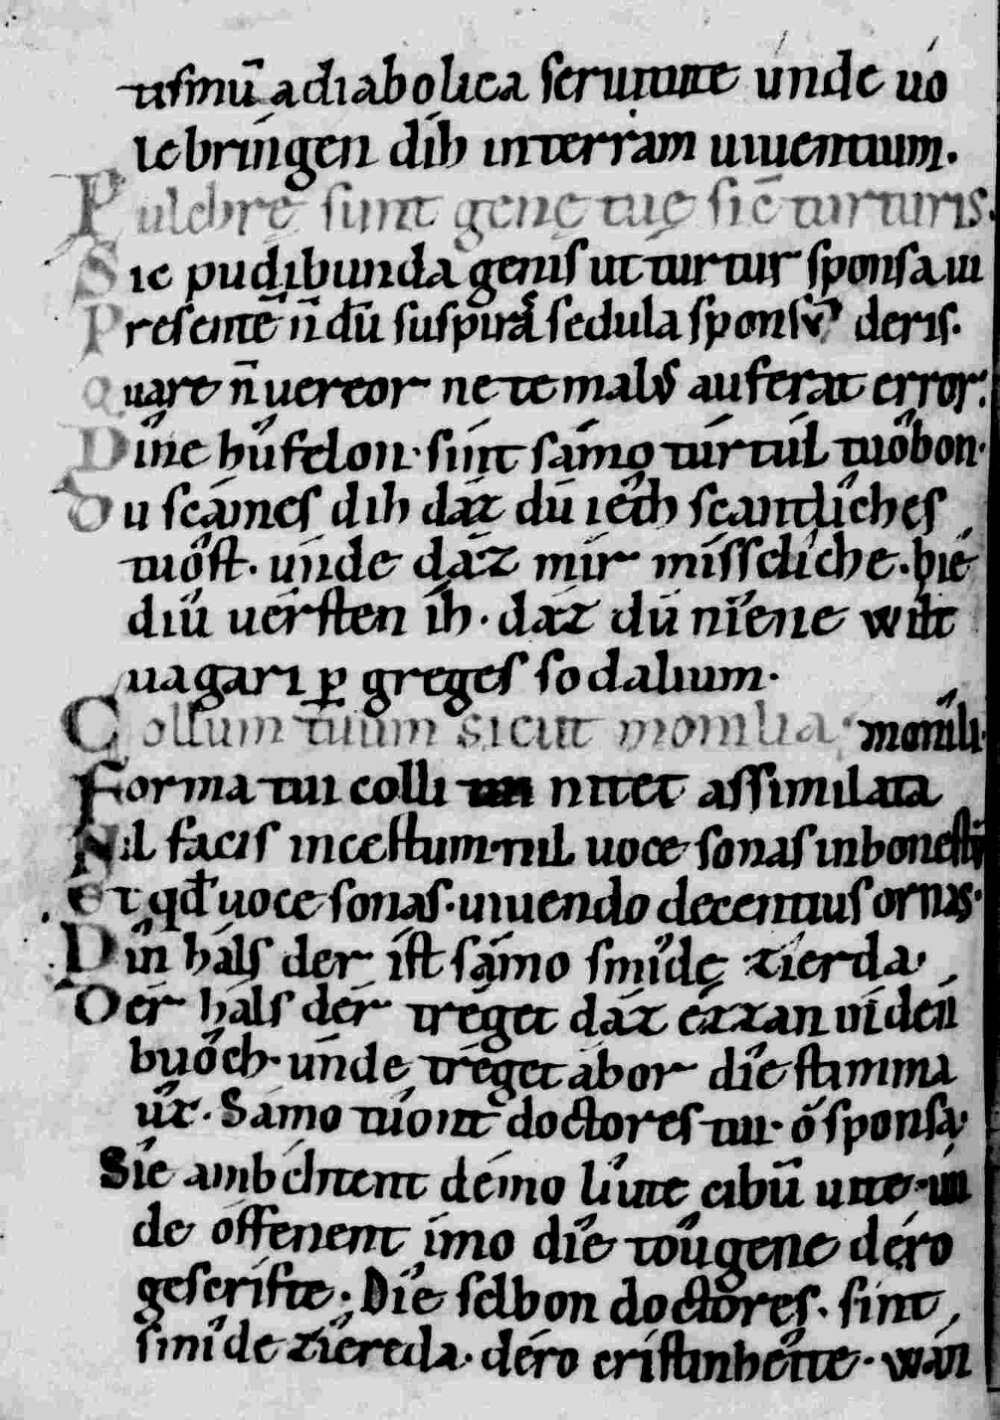 tismū a diabolica seruitute unde uô
lebríngen díh interram uiuentium.
Pulchrę sunt genę tuę sić turturis.
Sic pudibunda genis ut turtur sponsa ui
Presentē n̄ dū suspirā sedula spons⁹ deris.
Quare n̄ uereor ne te malus auferat error.
Dîne hûfelon. sínt sámo túrtul tûobon.
Du scámes díh dáz dû îeth scantlíches
tûost. únde dáz mír mísseliche. hîe
díu uérsten íh. dáz dû nîene wilt
uagari ꝑ greges sodalium.
Collum tuum sicut monilia. monili
Forma tui colli nitet assimilata
Nil facis incestum. nil uoce sonas inhonestū
Et qđ uoce sonas. uiuendo decentius ornas.
Dîn háls der íst sámo smîdę zîerda.
Der háls dér tréget dáz ézzan in dén
bûoch. únde tréget ábor dîe stimma
ûz. Sámo tûont doctores tui. ó sponsa.
Sîe ambehtent démo lîute cibū uitę. un
de óffenent ímo dîe tôugene déro
gescrifte. Dîe selbon doctores. sint
smîde zîereda. déro cristinhêite. wán